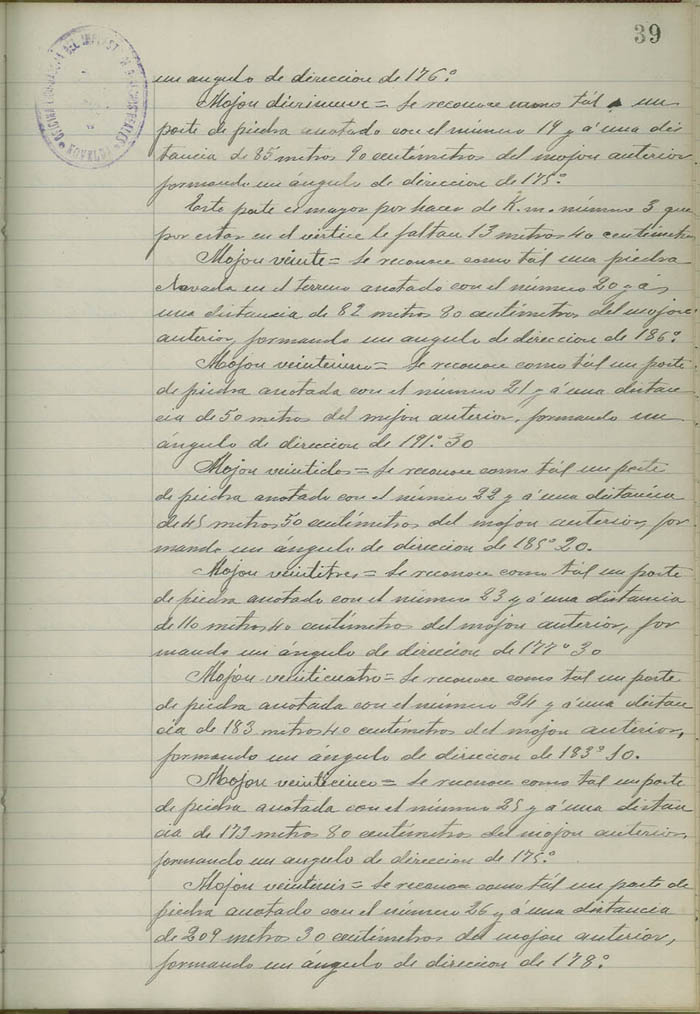 39
un angulo de direccion de 176.°
Mojon diecinueve = Se reconoce como tál un
poste de piedra anotado con el número 19 y á una dis
tancia de 85 metros 90 centímetros del mojon anterior
formando un ángulo de direccion de 175.°
Este poste es mayor por hacer de K. m. número 3 que
por estar en el vértice le faltan 13 metros 40 centímetros
Mojon veinte = Se reconoce como tál una piedra
clavada en el terreno anotado con el número 20 y á
una distancia de 82 metros 80 centímetros del mojon
anterior, formando un angulo de direccion de 186.°
Mojon veintiuno = Se reconoce como tál un poste
de piedra anotada con el número 21 y á una distan
cia de 50 metros del mojon anterior, formando un
ángulo de direccion de 191.° 30
Mojon veintidos = Se reconoce como tál un poste
de piedra anotado con el número 22 y á una distancia
de 45 metros 50 centímetros del mojon anterior, for
mando un ángulo de direccion de 185° 20.
Mojon veintitres = Se reconoce como tál un poste
de piedra anotado con el número 23 y á una distancia
de 110 metros 40 centímetros del mojon anterior, for
mando un ángulo de direccion de 177° 30
Mojon veinticuatro = Se reconoce como tal un poste
de piedra anotada con el número 24 y á una distan
cia de 183 metros 40 centímetros del mojon anterior,
formando un ángulo de direccion de 183° 10.
Mojon veinticinco = Se reconoce como tál un poste
de piedra anotada con el número 25 y á una distan
cia de 179 metros 80 centímetros del mojon anterior,
formando un angulo de direccion de 175.°
Mojon veintiseis = Se reconoce como tál un poste de
piedra anotado con el número 26 y á una distancia
de 209 metros 30 centímetros del mojon anterior,
formando un ángulo de direccion de 178.°